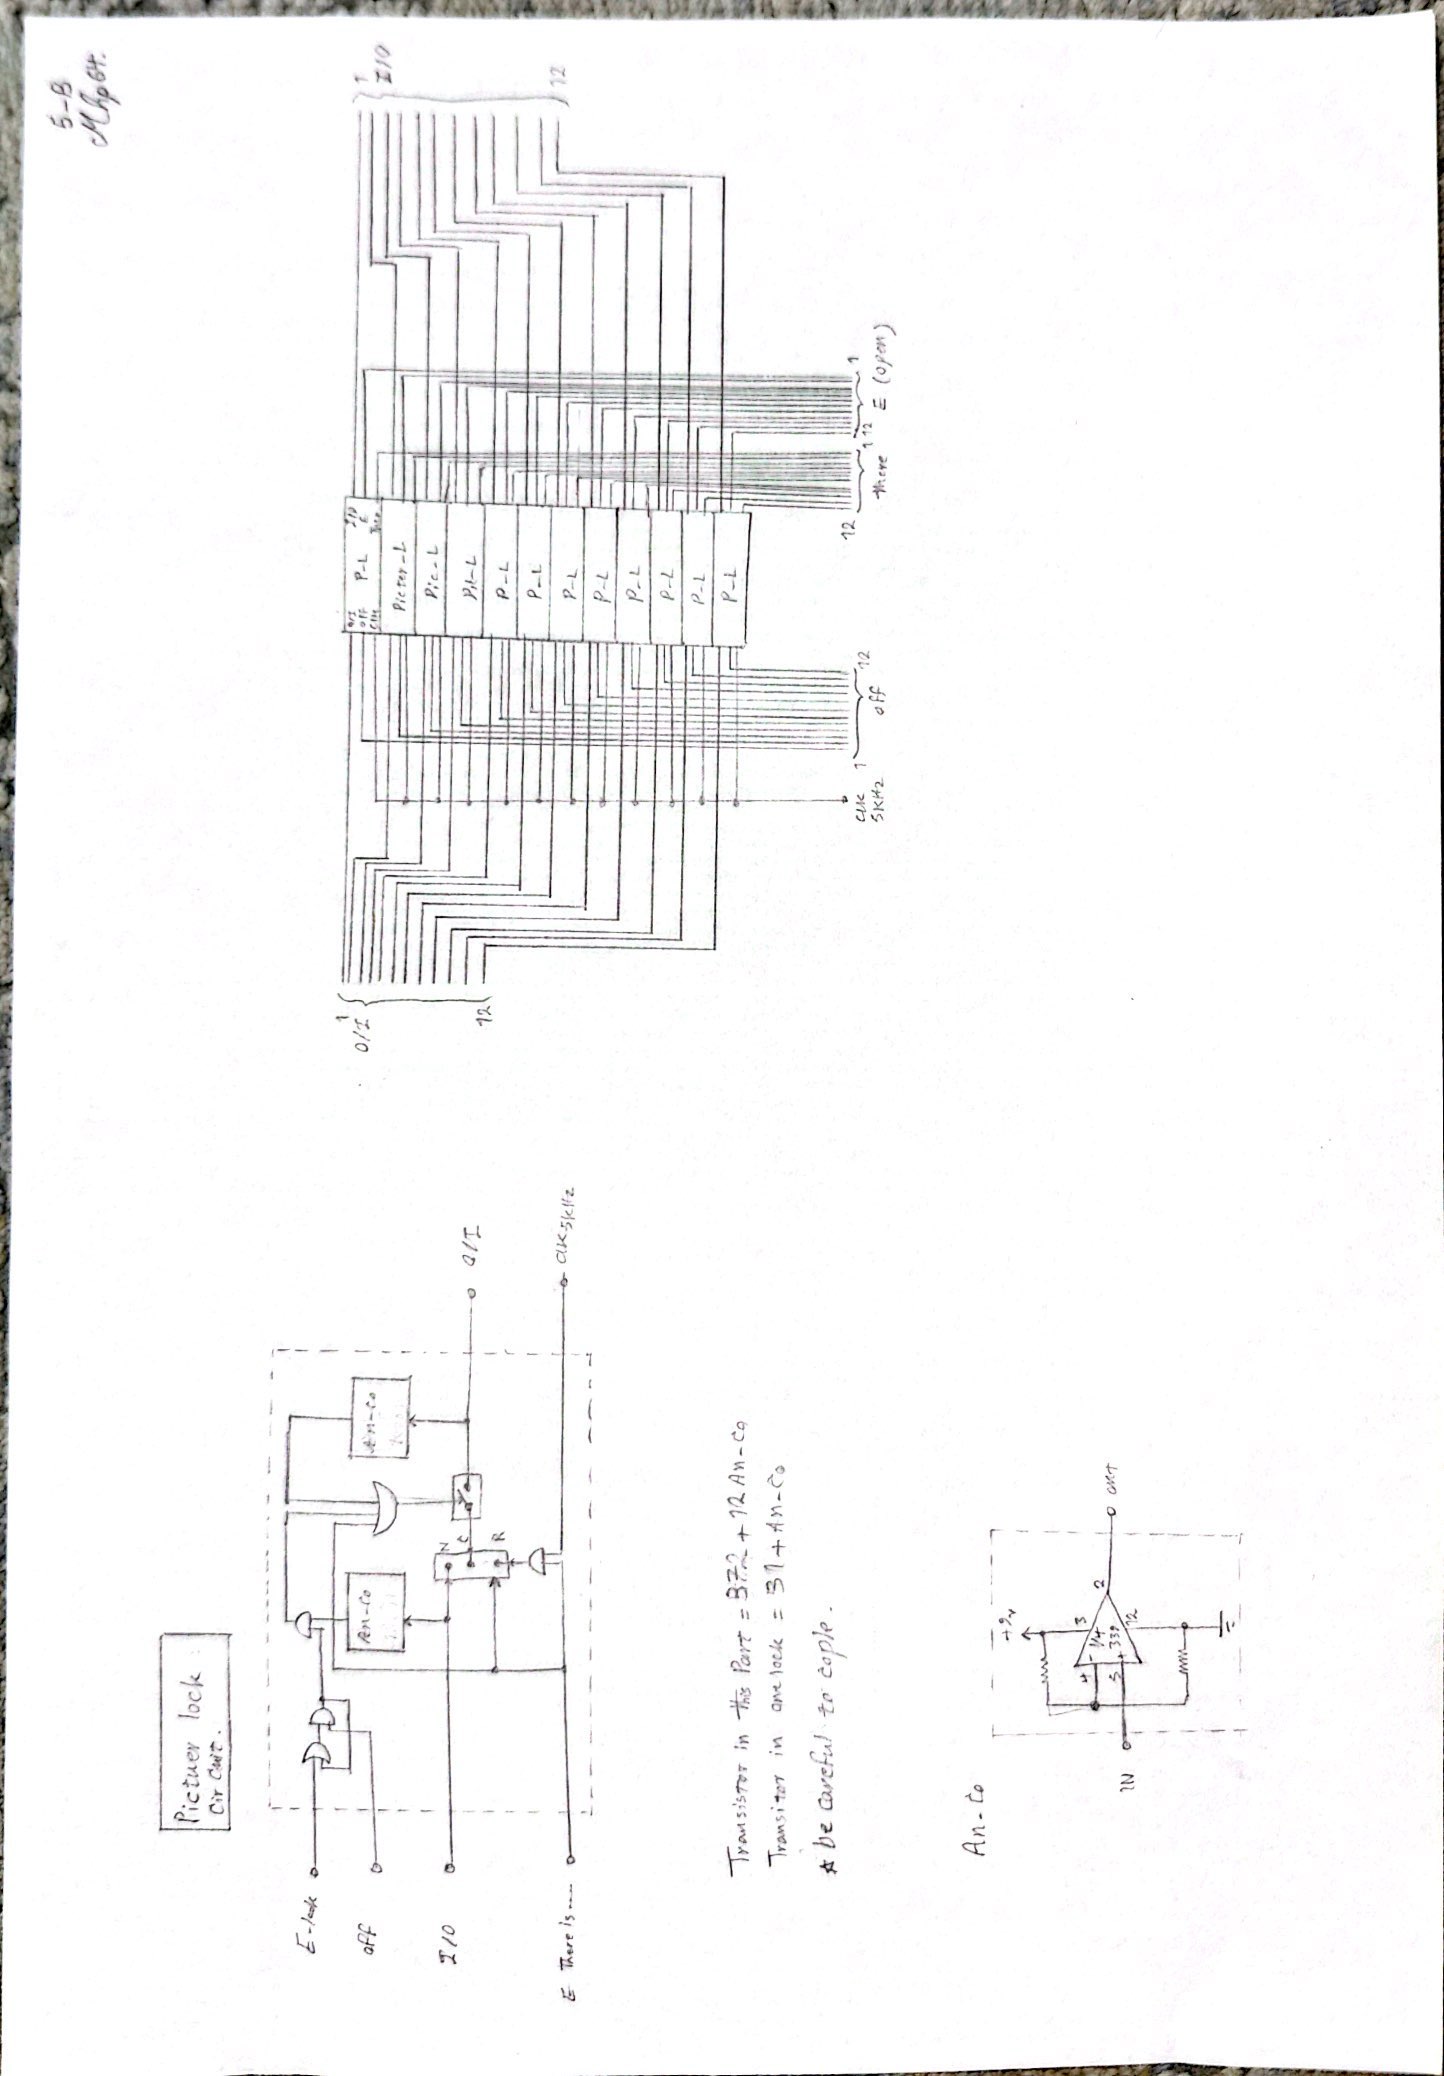 5-B
Mhp64.
Pictuer lock
Cir Cuit.
E-lock
off
I/O
E There is....
An-Co
An-Co
N
C
R
O/I
CLK 5KHz
Transistor in this Part = 372 + 12 An-Co
Transitor in one lock = 31 + An-Co
☆ be careful to cople.
An-Co
+9v
4
3
-
1/4
339
5
+
12
2
IN
out
1
O/I
12
O/I
off
Clk
P-L
I/O
E
There
Picter-L
Pic-L
Pi-L
P-L
P-L
P-L
P-L
P-L
P-L
P-L
P-L
1
I/O
12
CLK
5KHz
1
12
off
12
1
There
12
1
E (open)